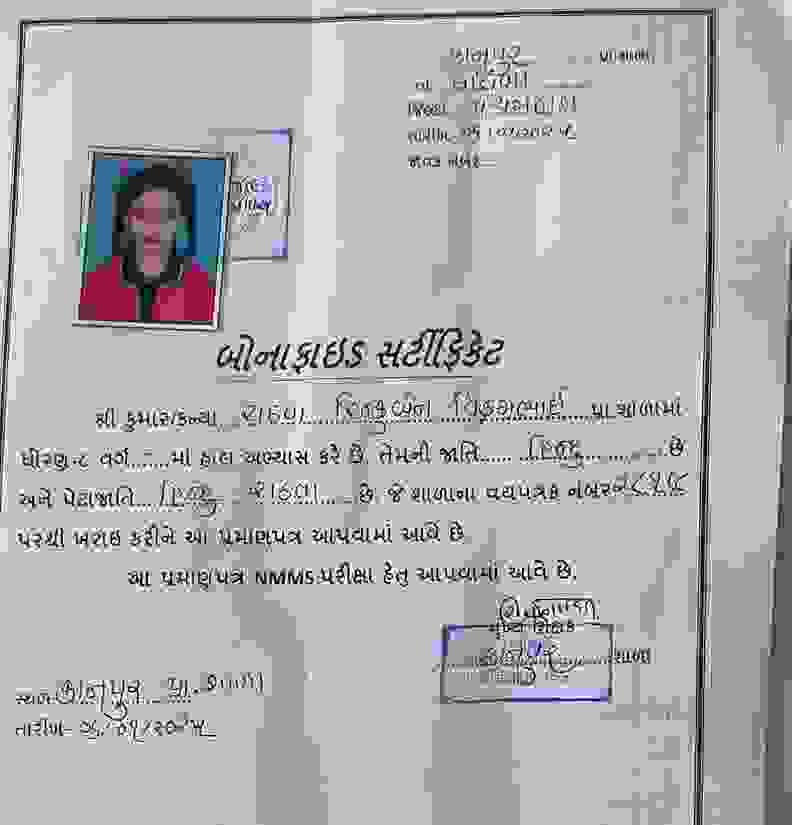 કાનપુર પ્રા.શાળા
તા.
જિલ્લો પંચમહાલ
તારીખ
જાવક નંબર
બોનાફાઇડ સર્ટીફિકેટ
શ્રી કુમાર/કન્યા રાઠવા રિન્કુબેન વિક્રમભાઇ પ્રા શાળામાં
ધોરણ-૮ વર્ગ ......માં હાલ અભ્યાસ કરે છે. તેમની જાતિ...... હિન્દુ ............છે
અને પેટાજાતિ....હિન્દુ રાઠવા......છે. જે શાળાના વયપત્રક નંબર
પરથી ખરાઇ કરીને આ પ્રમાણપત્ર આપવામાં આવે છે
આ પ્રમાણપત્ર NMMS પરીક્ષા હેતુ આપવામાં આવે છે.
મુખ્ય શિક્ષક
કાનપુર ........શાળા
સ્થળ કાનપુર પ્રા.શાળા
તારીખ-